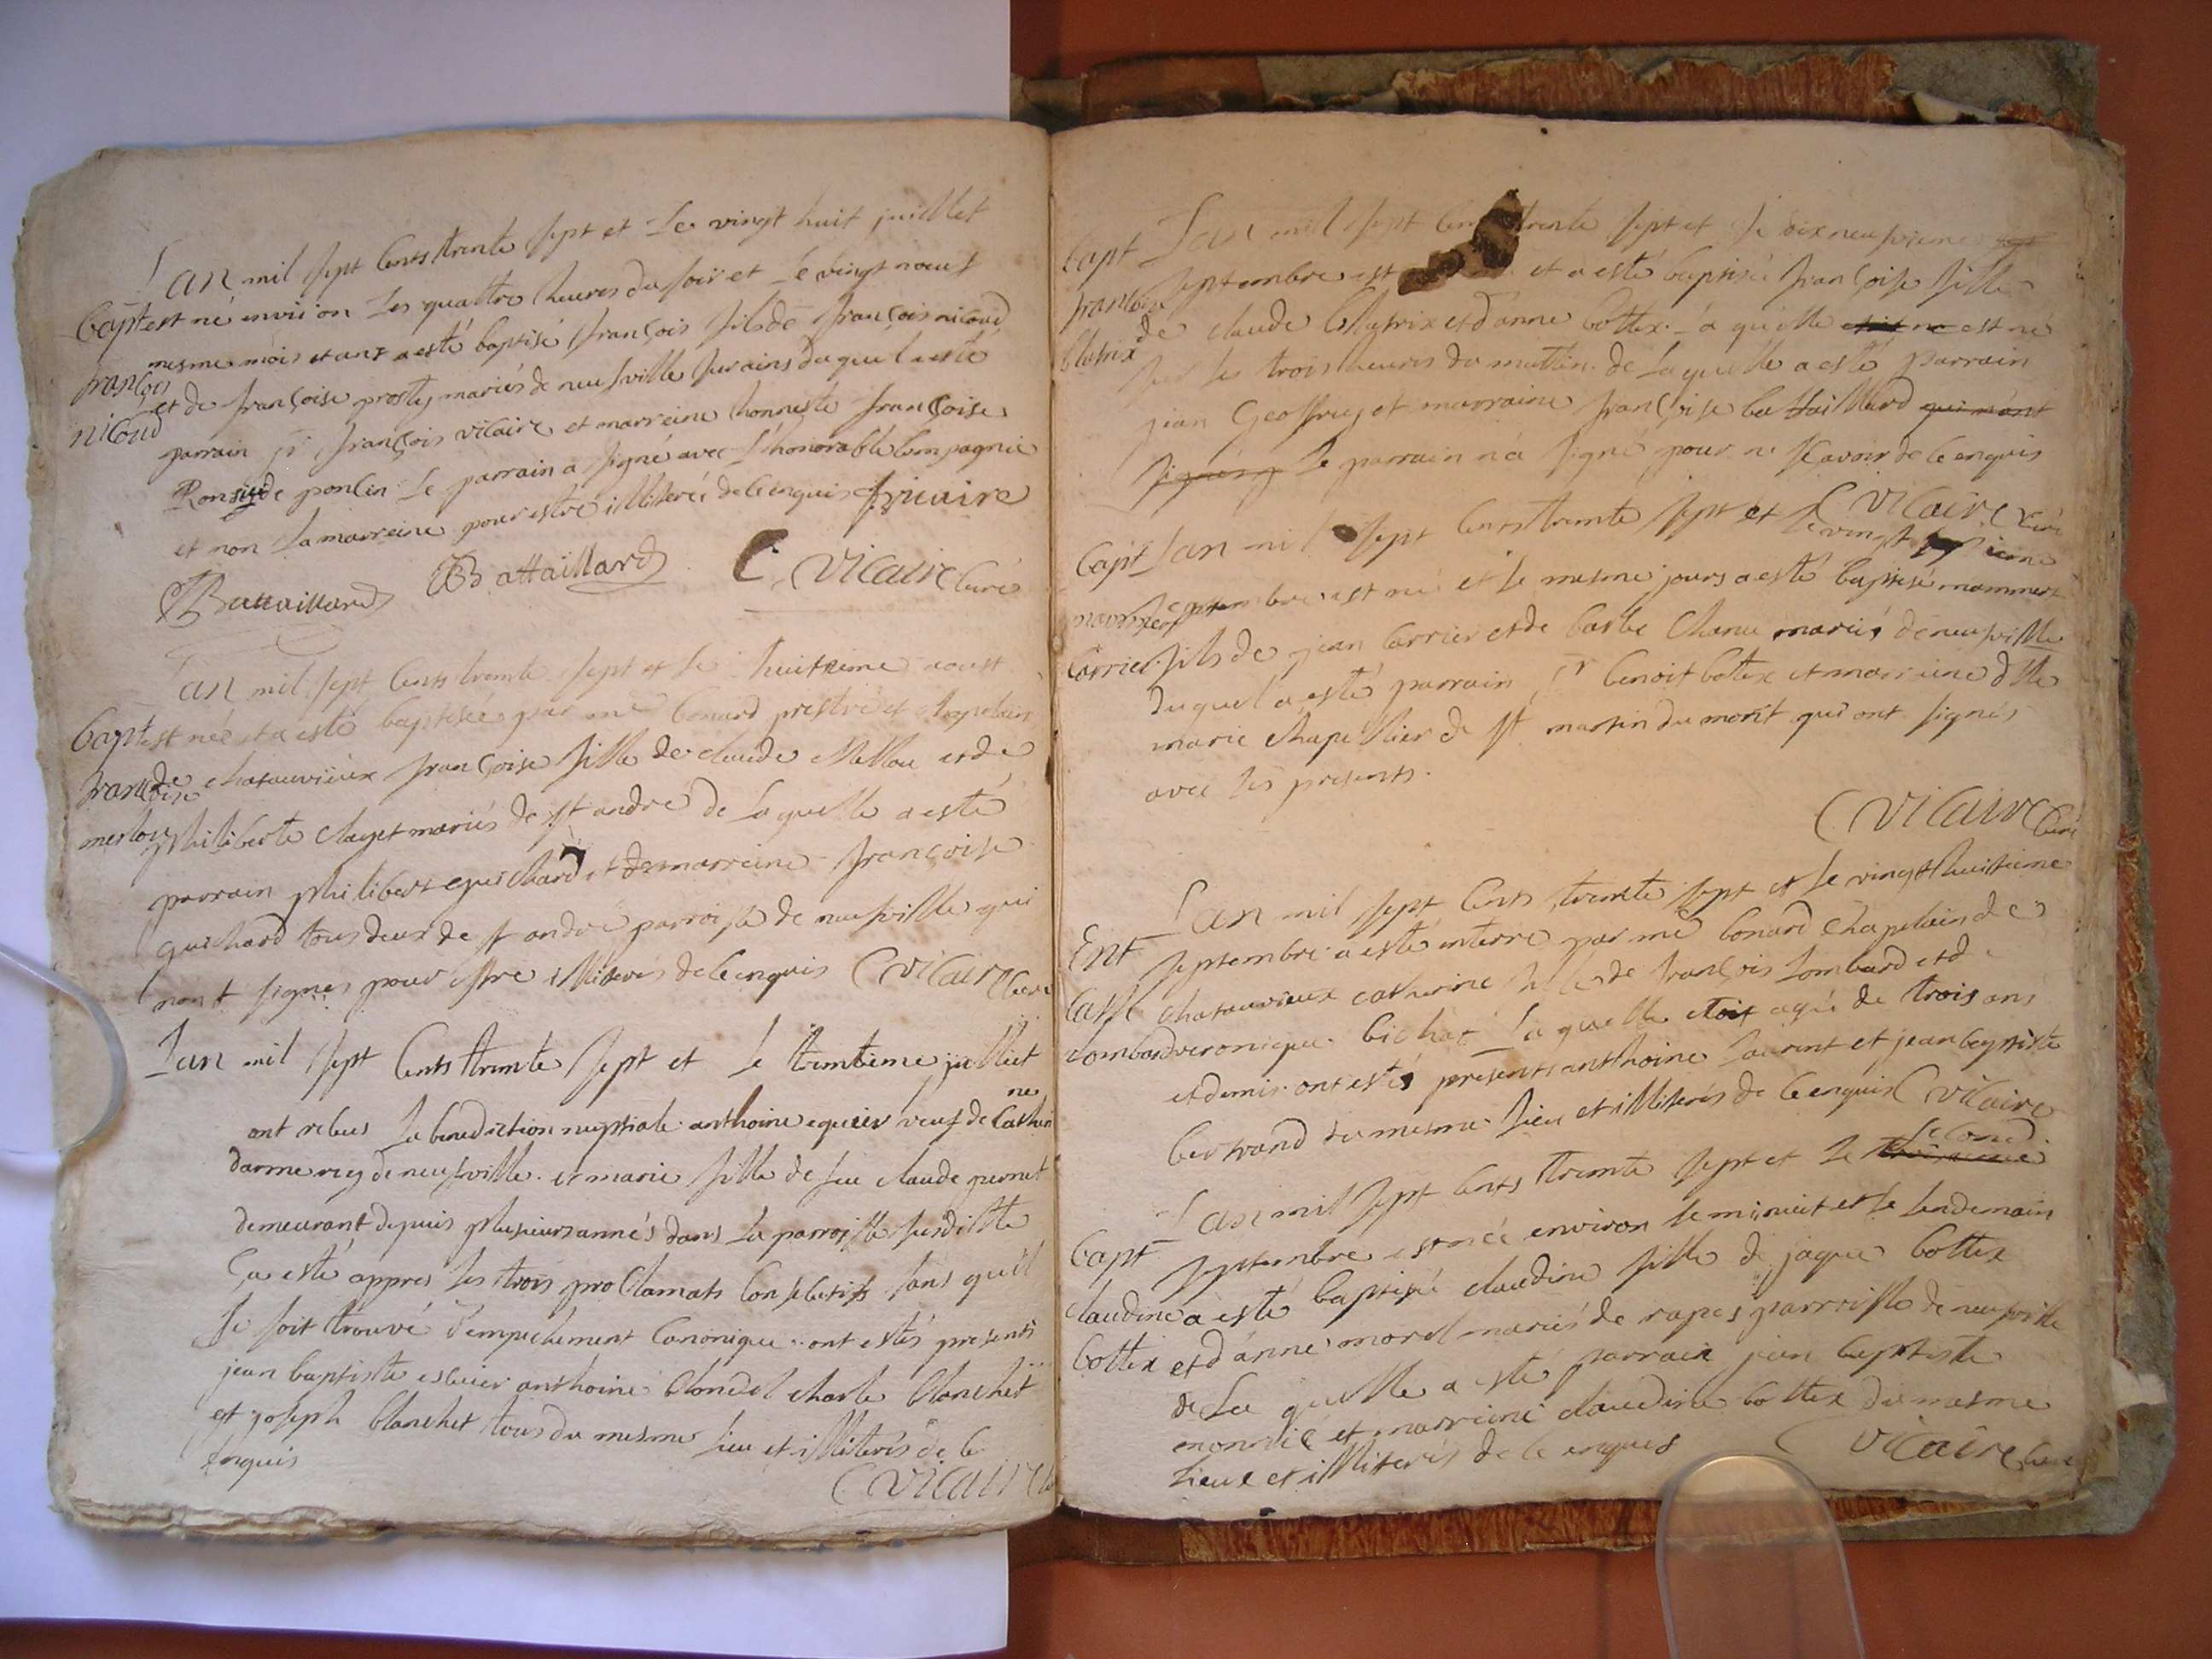 Lan mil sept cents trente sept et le vingt huit juillet
Bapt est né environ les quattre heures du soir et le vingt neuf
mesme mois et an a esté baptisé françois fils de françois nicoud
françois
et de françoise prost mariés de neufville surains duquel a esté
nicoud
parrain sr françois vicaire et marreine honneste françoise
de poncin le parrain a signé avec l'honorable compagnie
et non la marreine pour estre illiterée de ce enquis f vicaire
Battaillard Battaillard C. Vicaire curé
Lan mil sept cents trente sept et le huitieme aoust
Bapt est née et a esté baptisée par me bonard prestre et chapelain
françoise de chateauvieux françoise fille de claude Mellou et de
merlou philiberte clayet mariés de st andré de laquelle a esté
parrain philibert guichard et marreine françoise
guichard tous deux de st andré parroisse de neufville qui
n'ont signés pour estre illiterés de ce enquis C vicaire curé
Lan mil sept cents trente sept et le trentieme juillet
ne
ont rebeus la benediction nuptiale anthoine equier veuf de Catheri
darmerey de neufville et marie fille de feu claude pernet
demeurant depuis plusieurs annés dans la parroisse susditte
Ça esté appres les trois proclamats consecutifs sans qu'il
se soit trouvé d'empechement canonique ont estés presents
jean baptiste escuier anthoine blondel charle blanchet
et joseph blanchet tous du mesme lieu et illiterés de ce
enquis
C Vicaire
Bapt Lan mil sept cents trente sept et le dix neufvieme
septembre est et a esté baptisée françoise fille
françoise
de claude blatrix et d'anne bottex la quelle est né
blatrix
sur les trois heures du mattin de laquelle a esté parrain
jean Geoffray et marraine françoise battaillard qui n'ont
signés le parrain n'a signé pour ne scavoir de ce enquis
C Vicaire curé
Bapt Lan mil sept cents trente sept et le vingt
mammert septembre est né et le mesme jours a esté baptisé mammert
Corrier fils de jean Corrier et de barbe Chanu mariés de neufville
duquel a esté parrain sr benoit bottex et marreine dlle
marie chapellier de st martin du mont qui ont signés
avec les presents.
C Vicaire curé
Lan mil sept cents trente sept et le vingt huitieme
Ent septembre a esté enterré par me bonard chapelain de
Cath chateauvieux catherine fille de françois Lombard et de
Lombard veronique bichat laquelle etoit agée de trois ans
et demis ont estés presents anthoine laurent et jean baptiste
bertrand du mesme lieu et illiterés de ce enquis C Vicaire
second
Lan mil sept cents trente sept et le troisieme
Bapt septembre est née environ le minuit et le lendemain
claudine a esté baptisée claudine fille de jaque bottex
bottex et d'anne morel mariés de rapes parroisse de neufville
de la quelle a esté parrain jean baptiste
et marreine claudine bottex du mesme
lieux et illiterés de ce enques C Vicaire curé